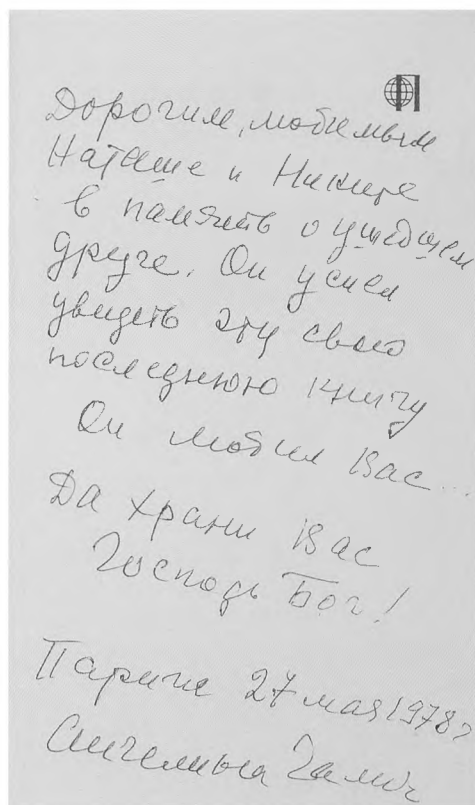 Дорогим, любимым
Наташе и Никите
в память о ушедшем
друге. Он успел
увидеть эту свою
последнюю книгу
Он любил Вас...
Да храни Вас
Господь Бог!
Париж 27 мая 1978г
Ангелина Галич